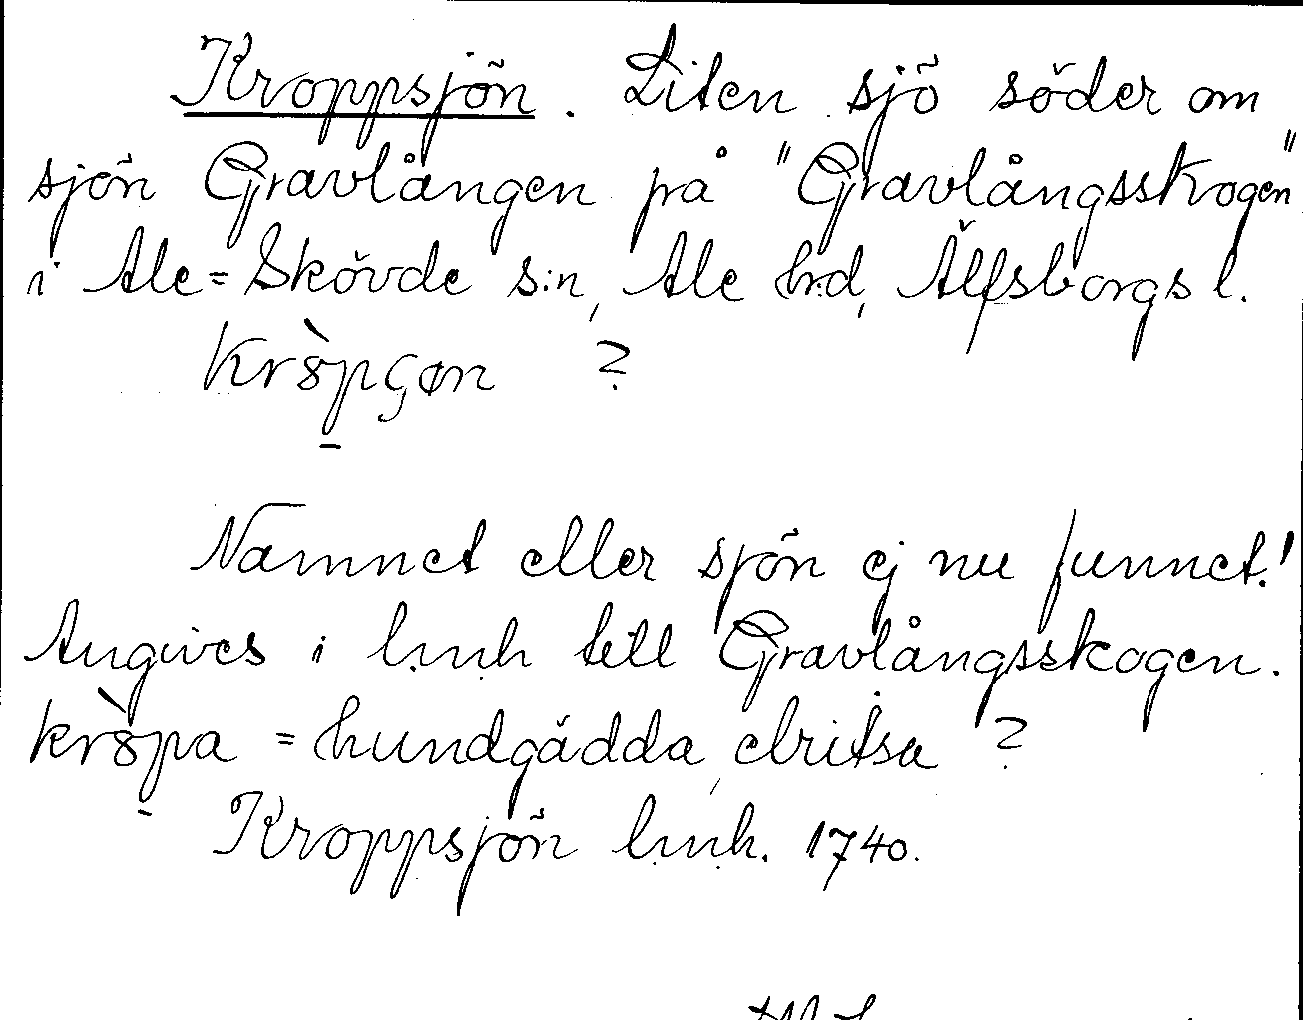 Kroppsjön. Liten sjö söder om
sjön Gravlången på "Gravlångsskogen"
i Ale=Skövde s:n, Ale hrd, Älfsborgs l.
?
Namnet eller sjön ej nu funnet!
Angives i l.m.h till Gravlångsskogen.
= hundgädda, elritsa ?
Kroppsjön l.m.h. 1740.